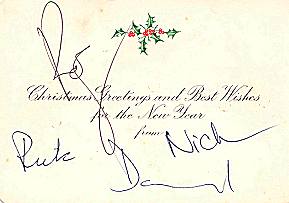 Christmas Greetings and Best Wishes
for the New Year
from
Nick
Rick
David